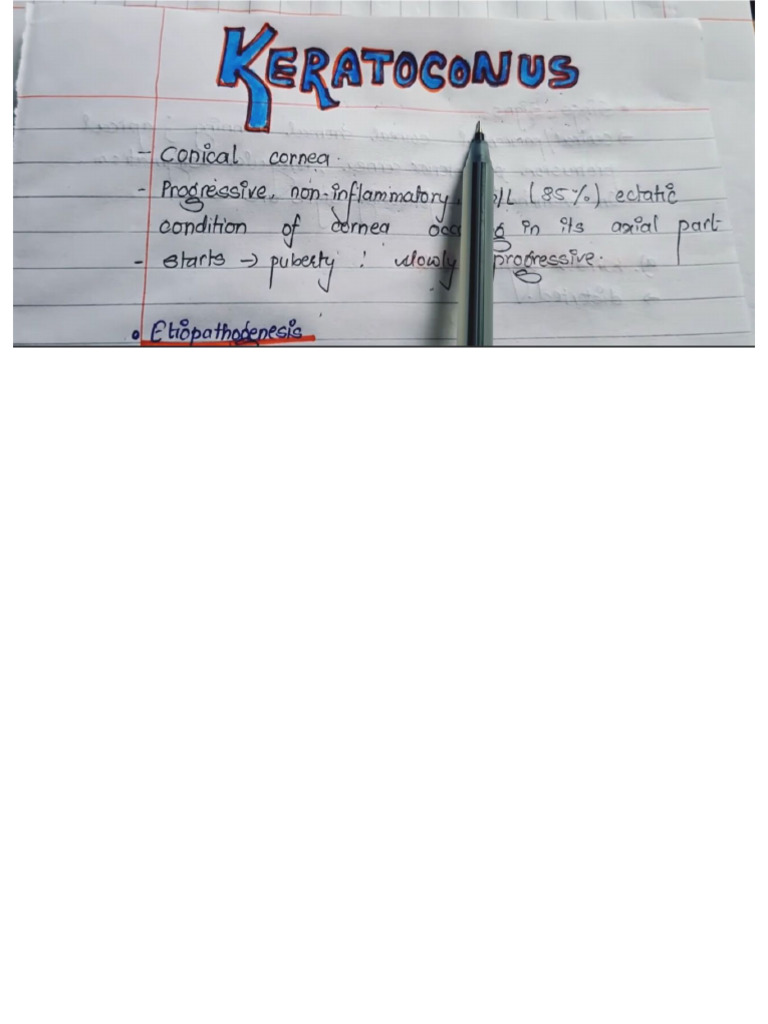 KERATOCONUS
- Conical cornea.
- Progressive, non-inflammatory (85%) ectatic
condition of cornea in its axial part
- starts → puberty : slowly progressive.
• Etiopathogenesis